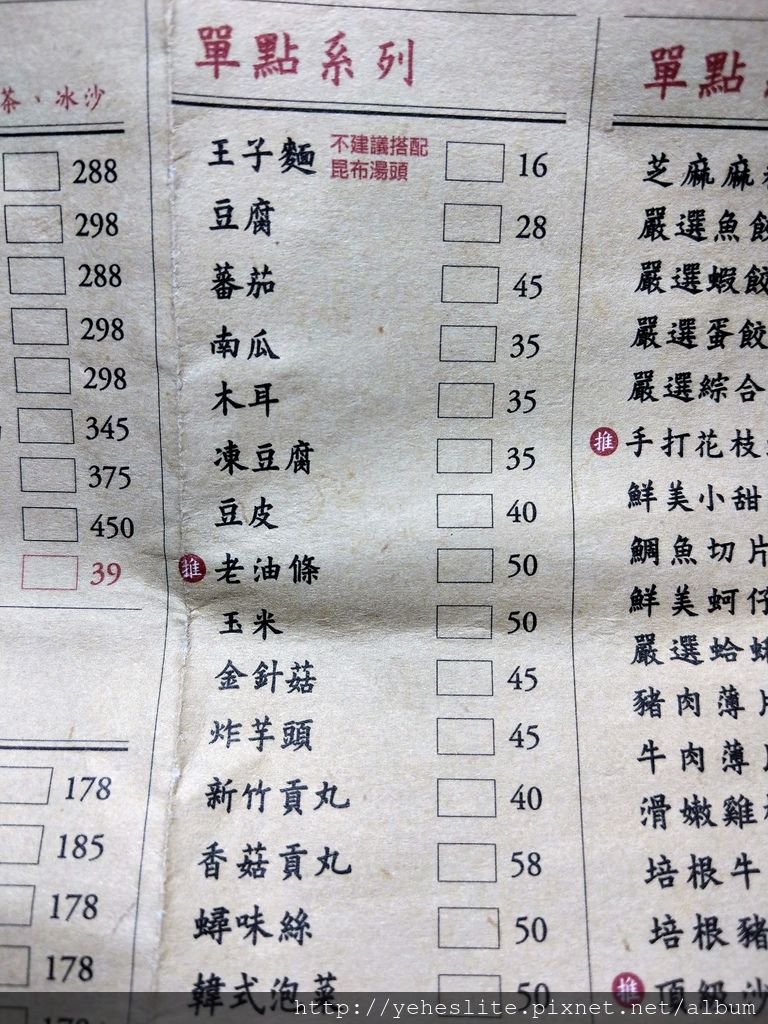 茶、冰沙
288
298
288
298
298
345
375
450
39
178
185
178
178
單點系列
王子麵 不建議搭配 16
昆布湯頭
豆腐 28
蕃茄 45
南瓜 35
木耳 35
凍豆腐 35
豆皮 40
推 老油條 50
玉米 50
金針菇 45
炸芋頭 45
新竹貢丸 40
香菇貢丸 58
蟳味絲 50
韓式泡菜 50
單點
芝麻麻
嚴選魚餃
嚴選蝦餃
嚴選蛋餃
嚴選綜合
推 手打花枝
鮮美小甜
鯛魚切片
鮮美蚵仔
嚴選蛤
豬肉薄片
牛肉薄
滑嫩雞
培根牛
培根豬
推 頂級沙
http://yeheslite.pixnet.net/album